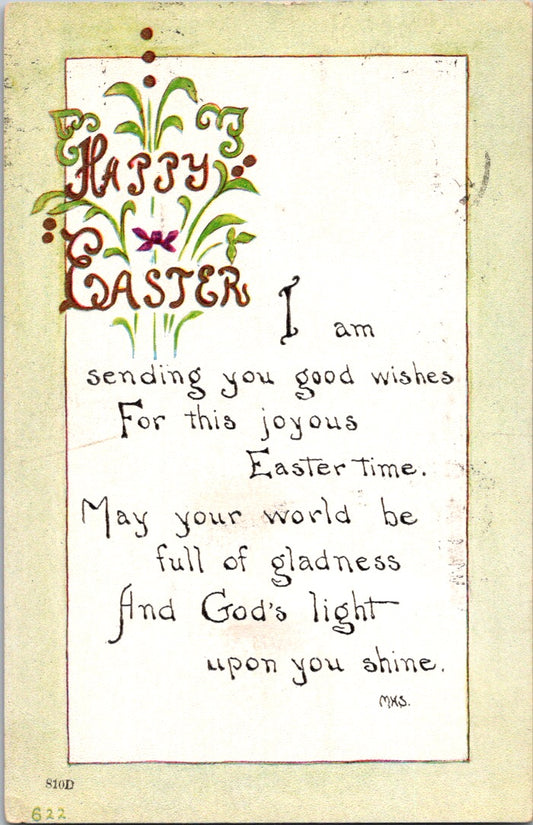 HAPPY
EASTER
I am
sending you good wishes
For this joyous
Easter time.
May your world be
full of gladness
And God's light
upon you shine.
MHS.
810D
622